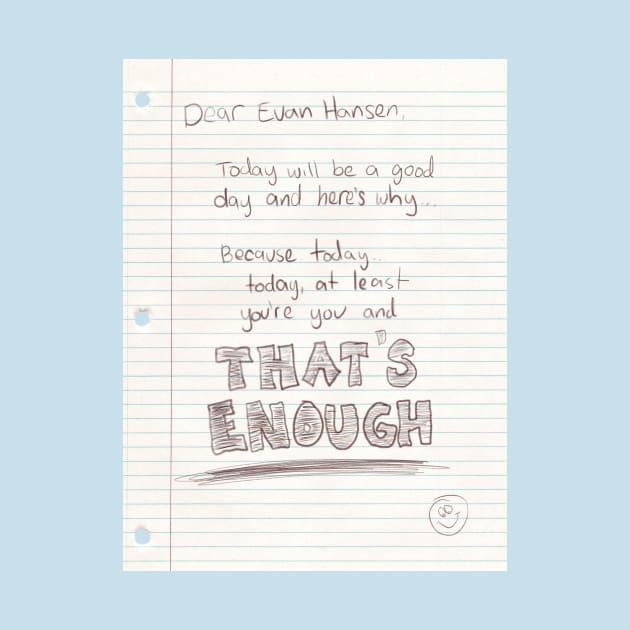 Dear Evan Hansen,
Today will be a good
day and here's why...
Because today..
today, at least
you're you and
THAT'S
ENOUGH